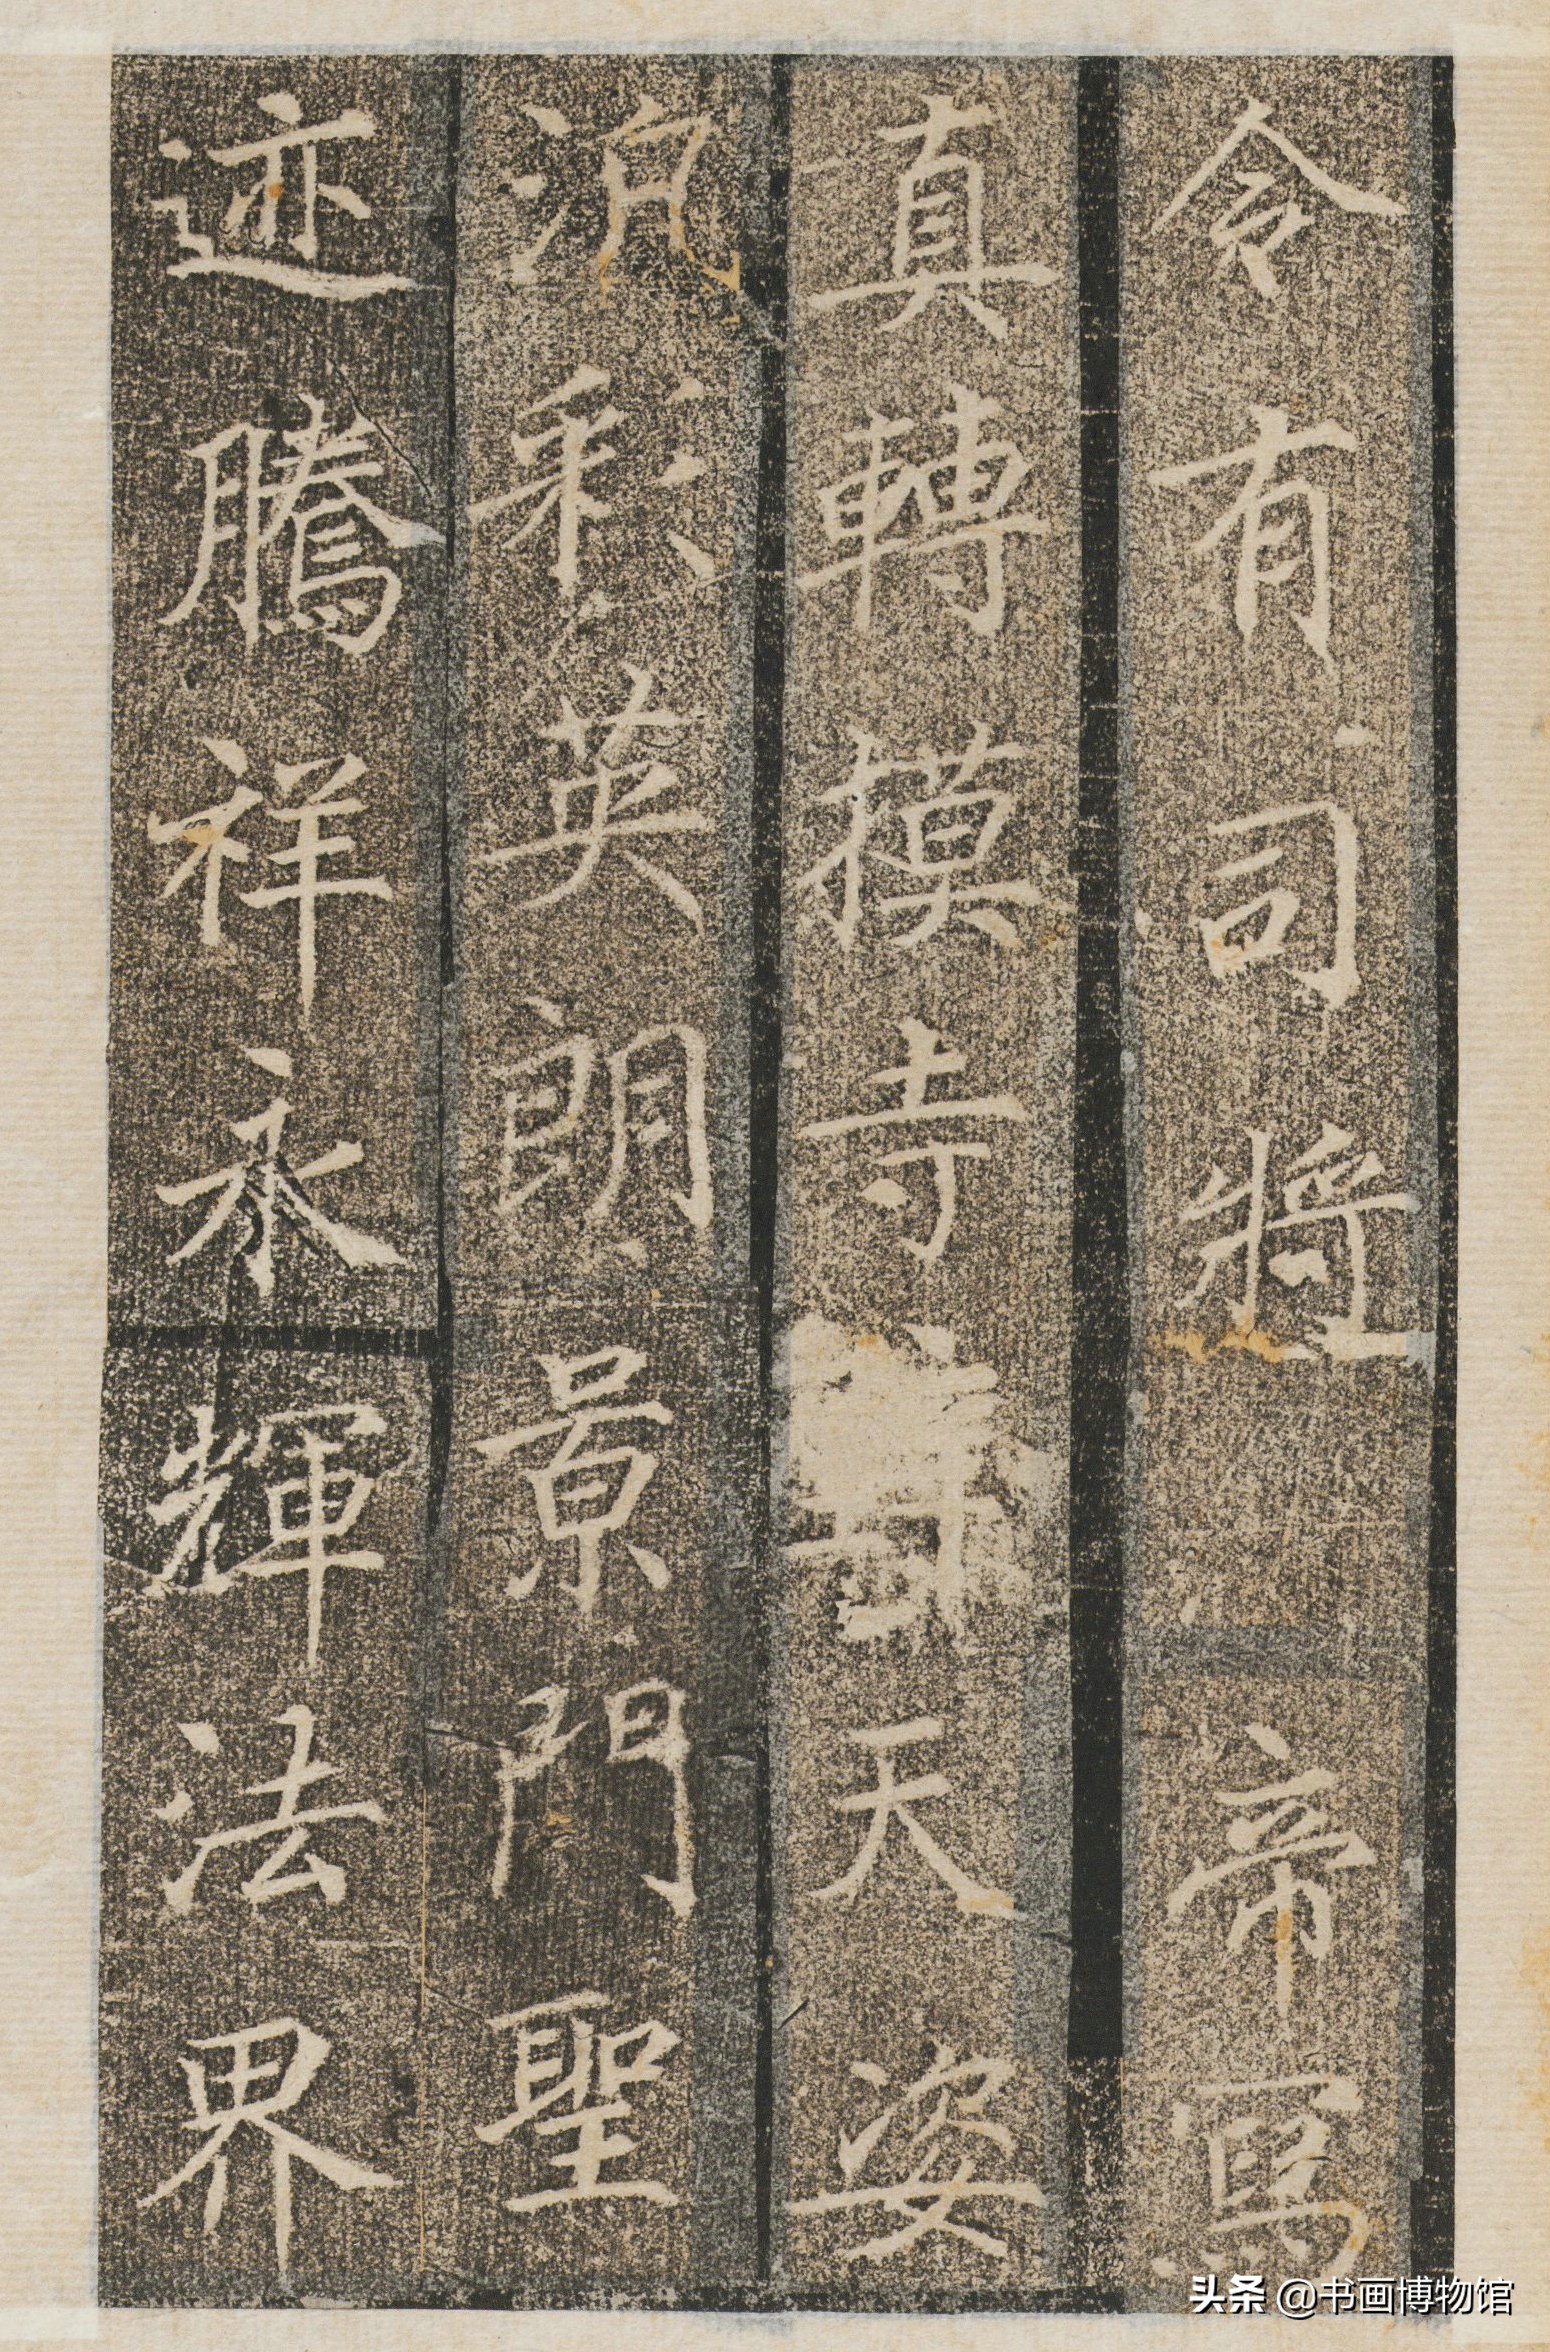 令有司將 帝寫
真轉摸寺天姿
汎彩英朗景門聖
迹騰祥永輝法界
头条 @书画博物馆